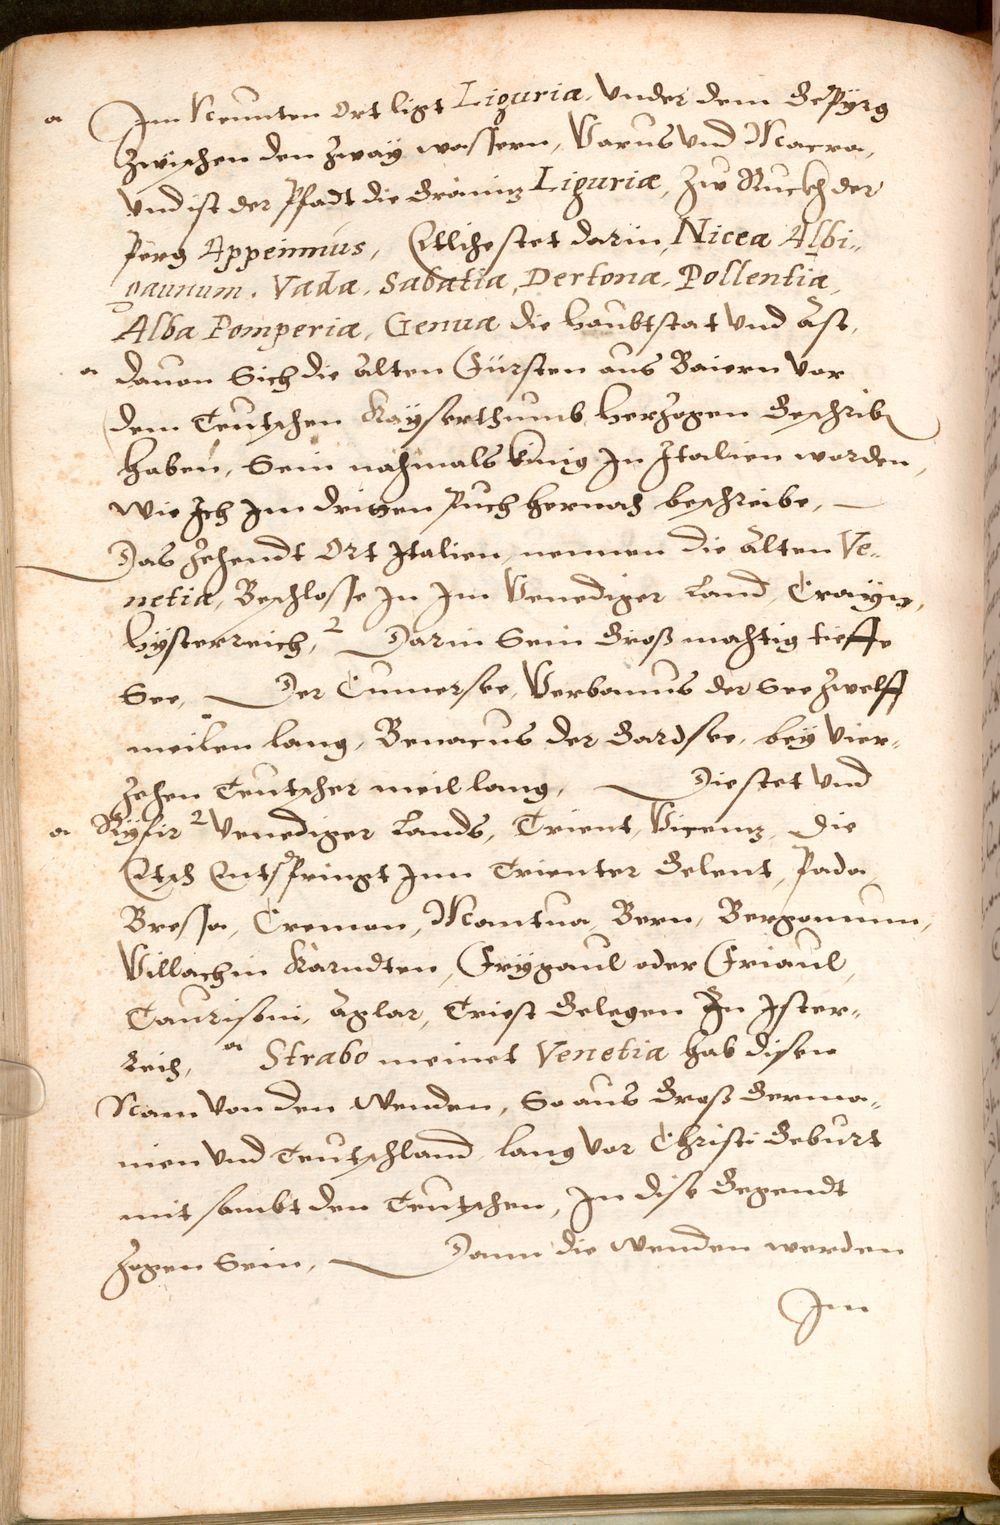 a Im Neunten Ort ligt Liguria. Vnder dem Gepyrg
Zwischen den Zway wassern, Varus vnd Macra,
Vnd ist der Pfadt die Gräintz Liguriæ, Zw Ruckh der
Perg Appeinnius, Etliche stet darin Nicea Albi„
gaunum. Vada. Sabatia, Dertona. Pollentia,
Alba Pomperia, Genua die haubtstat Vnd Ast,
a dauon Sich die alten Fürsten aus Baiern Vor
dem Teutschen Kayserthumb, herzogen Geschriben
haben, Sein nachmals künig Jn Jtalien worden,
Wie Jch Jm driten Puch hernach beschreibe,
Das Zehendt Ort Jtalien nennen die alten Ve„
netia, Beschlosse Jn Jm Venediger Land, Crayn,
Hysterreich, 2 Darin Sein Groß mechtig tieffe
See, Der Cumersee, Verbanus der See Zwelff
meilen lang, Benacus der Gardsee, bey Vier„
Zehen Teutscher meil lang, Die stet Vnd
a Rysir 2 Venediger Lands, Trient, Vicentz, Die
Etsch Entspringt Jnn Trienter Gelent, Pada,
Bressa, Cremon, Mantua, Bern, Bergamum,
Villach in Karndten, Frygaul oder Friaul,
Taurisoni, Aglar, Triest Gelegen Jn Jster„
Reich, a Strabo meinet Venetia hab disen
Nam Von den Wenden, So aus Groß Germa„
nien Vnd Teutschland lang Vor Christi Geburt
mit sambt den Teutschen, Jn dise Gegendt
Zogen Sein, Dann die Wenden werden
Jm